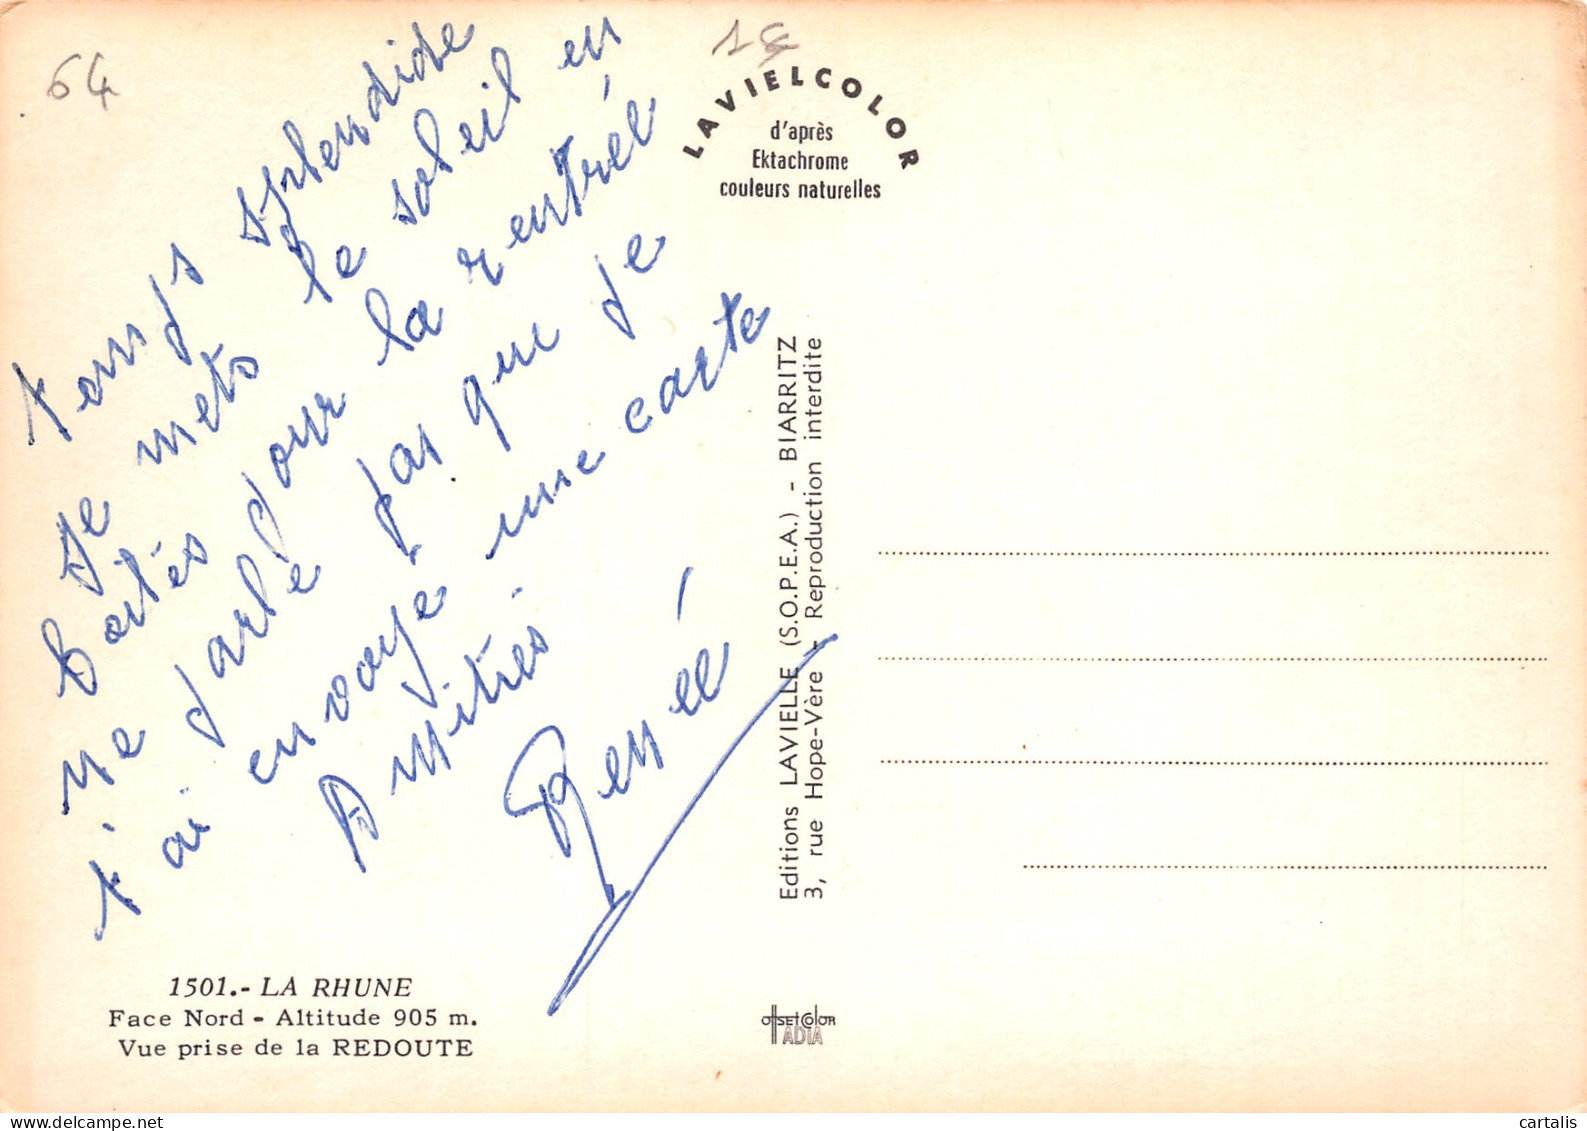 64
1€
temps splendide
Je mets le soleil en
boites pour la rentrée
ne parle pas que je
t'ai envoyé une carte
Amitiés
Renée
LAVIELCOLOR
d'après
Ektachrome
couleurs naturelles
Editions LAVIELLE (S.O.P.E.A.) - BIARRITZ
3, rue Hope-Vère - Reproduction interdite
1501.- LA RHUNE
Face Nord - Altitude 905 m.
Vue prise de la REDOUTE
OffsetColor
ADIA
cartalis